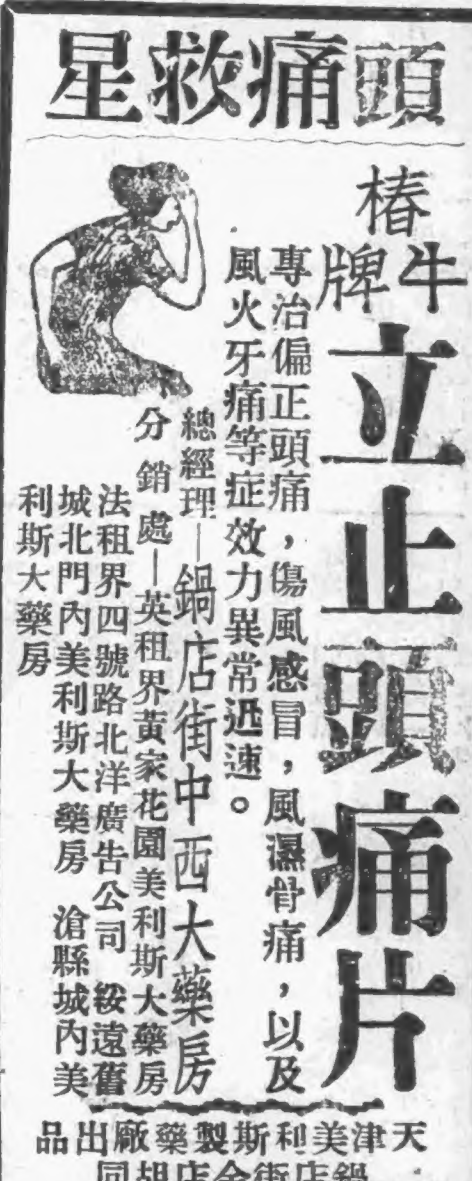 頭痛救星
椿
牛牌
立止頭痛片
專治偏正頭痛，傷風感冒，風濕骨痛，以及
風火牙痛等症效力異常迅速。
總經理—鍋店街中西大藥房
分銷處—英租界黃家花園美利斯大藥房
法租界四號路北洋廣告公司 綏遠舊
城北門內美利斯大藥房 滄縣城內美
利斯大藥房
天津美利斯製藥廠出品
鍋店街金店胡同